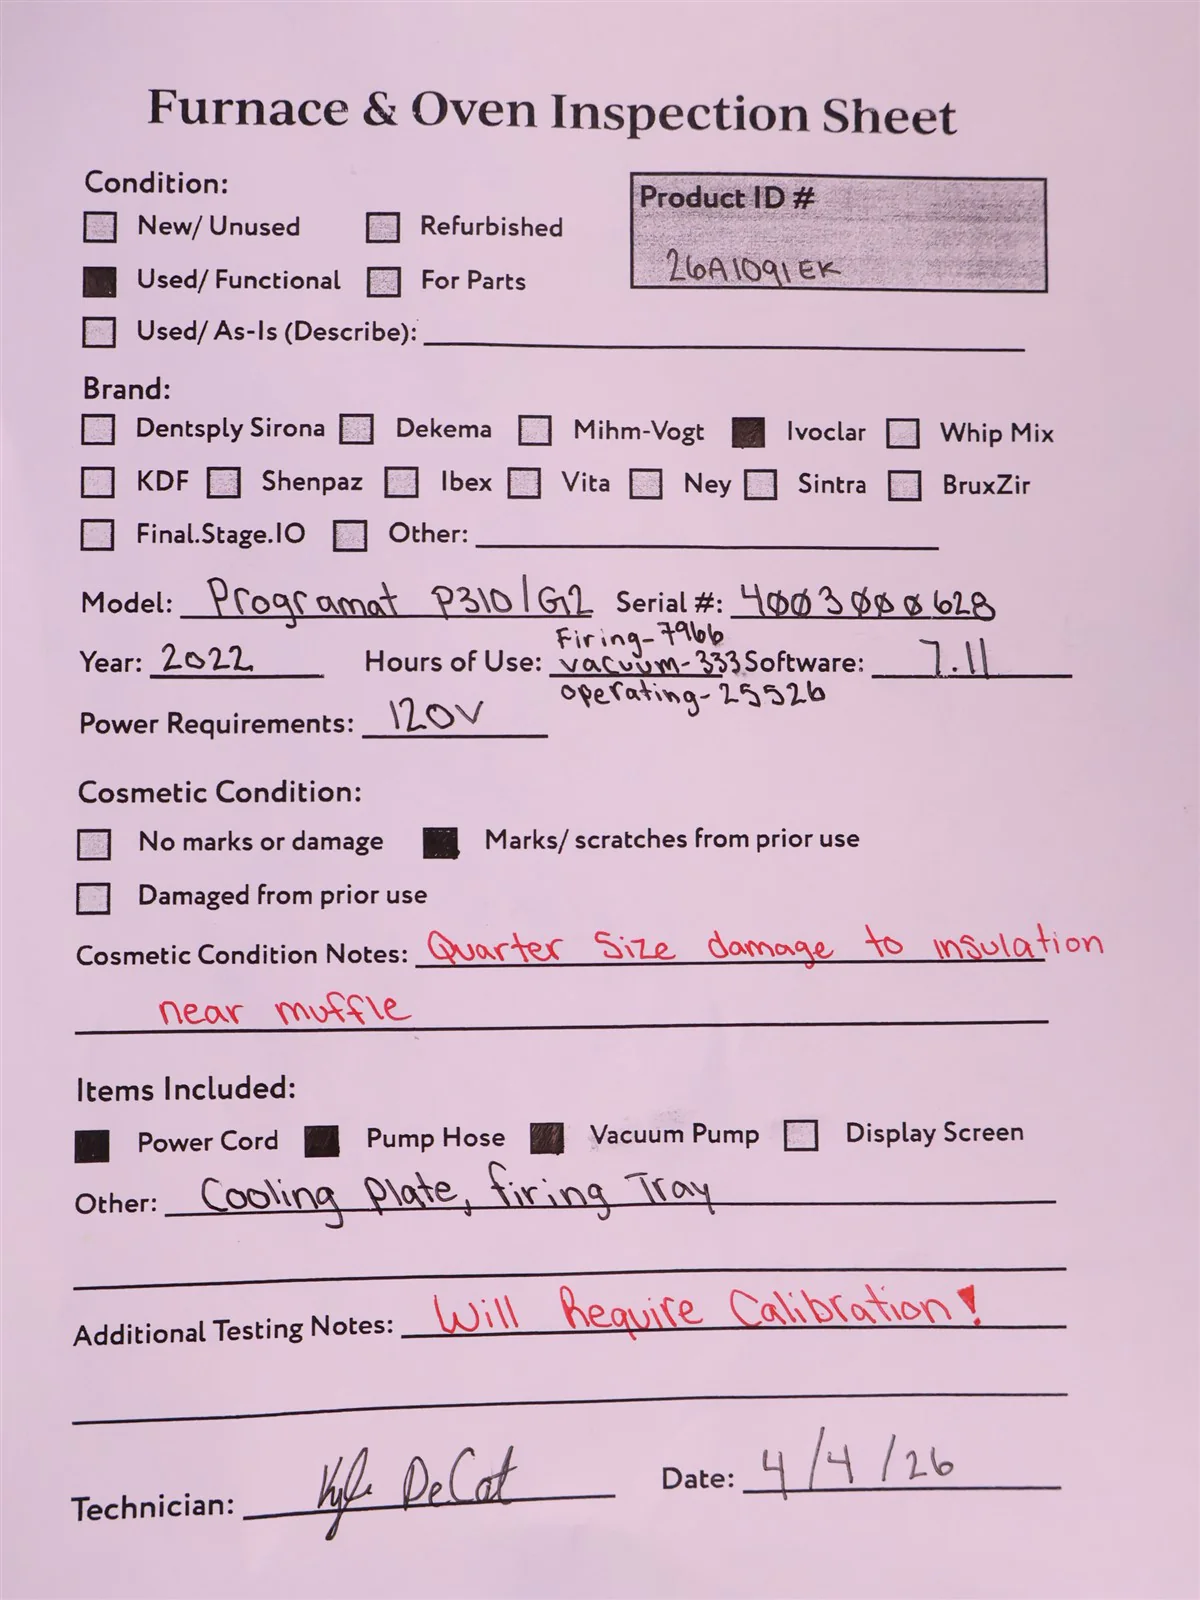 Furnace & Oven Inspection Sheet
Condition:
New/ Unused
Refurbished
Product ID #
26A1091EK
Used/ Functional
For Parts
Used/ As-Is (Describe):
Brand:
Dentsply Sirona
Dekema
Mihm-Vogt
Ivoclar
Whip Mix
KDF
Shenpaz
Ibex
Vita
Ney
Sintra
BruxZir
Final.Stage.IO
Other:
Model: Programat P310/G2 Serial #: 4003000628
Year: 2022 Hours of Use: Firing-7966
vacuum-333 Software: 7.11
operating-25526
Power Requirements: 120V
Cosmetic Condition:
No marks or damage
Marks/ scratches from prior use
Damaged from prior use
Cosmetic Condition Notes: Quarter Size damage to insulation
near muffle
Items Included:
Power Cord
Pump Hose
Vacuum Pump
Display Screen
Other: Cooling Plate, firing Tray
Additional Testing Notes: Will Require Calibration!
Technician: Kyle DeCat Date: 4/4/26